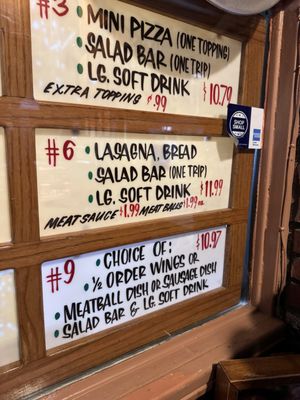 #3
• MINI PIZZA (ONE TOPPING)
• SALAD BAR (ONE TRIP)
• LG. SOFT DRINK $10.79
EXTRA TOPPING $.99
SHOP
SMALL
#6 • LASAGNA, BREAD
• SALAD BAR (ONE TRIP)
• LG. SOFT DRINK $11.99
MEAT SAUCE $1.99 MEATBALLS $1.99 ea.
#9 • CHOICE OF: $10.97
• ½ ORDER WINGS OR
• MEATBALL DISH OR SAUSAGE DISH
• SALAD BAR & LG. SOFT DRINK